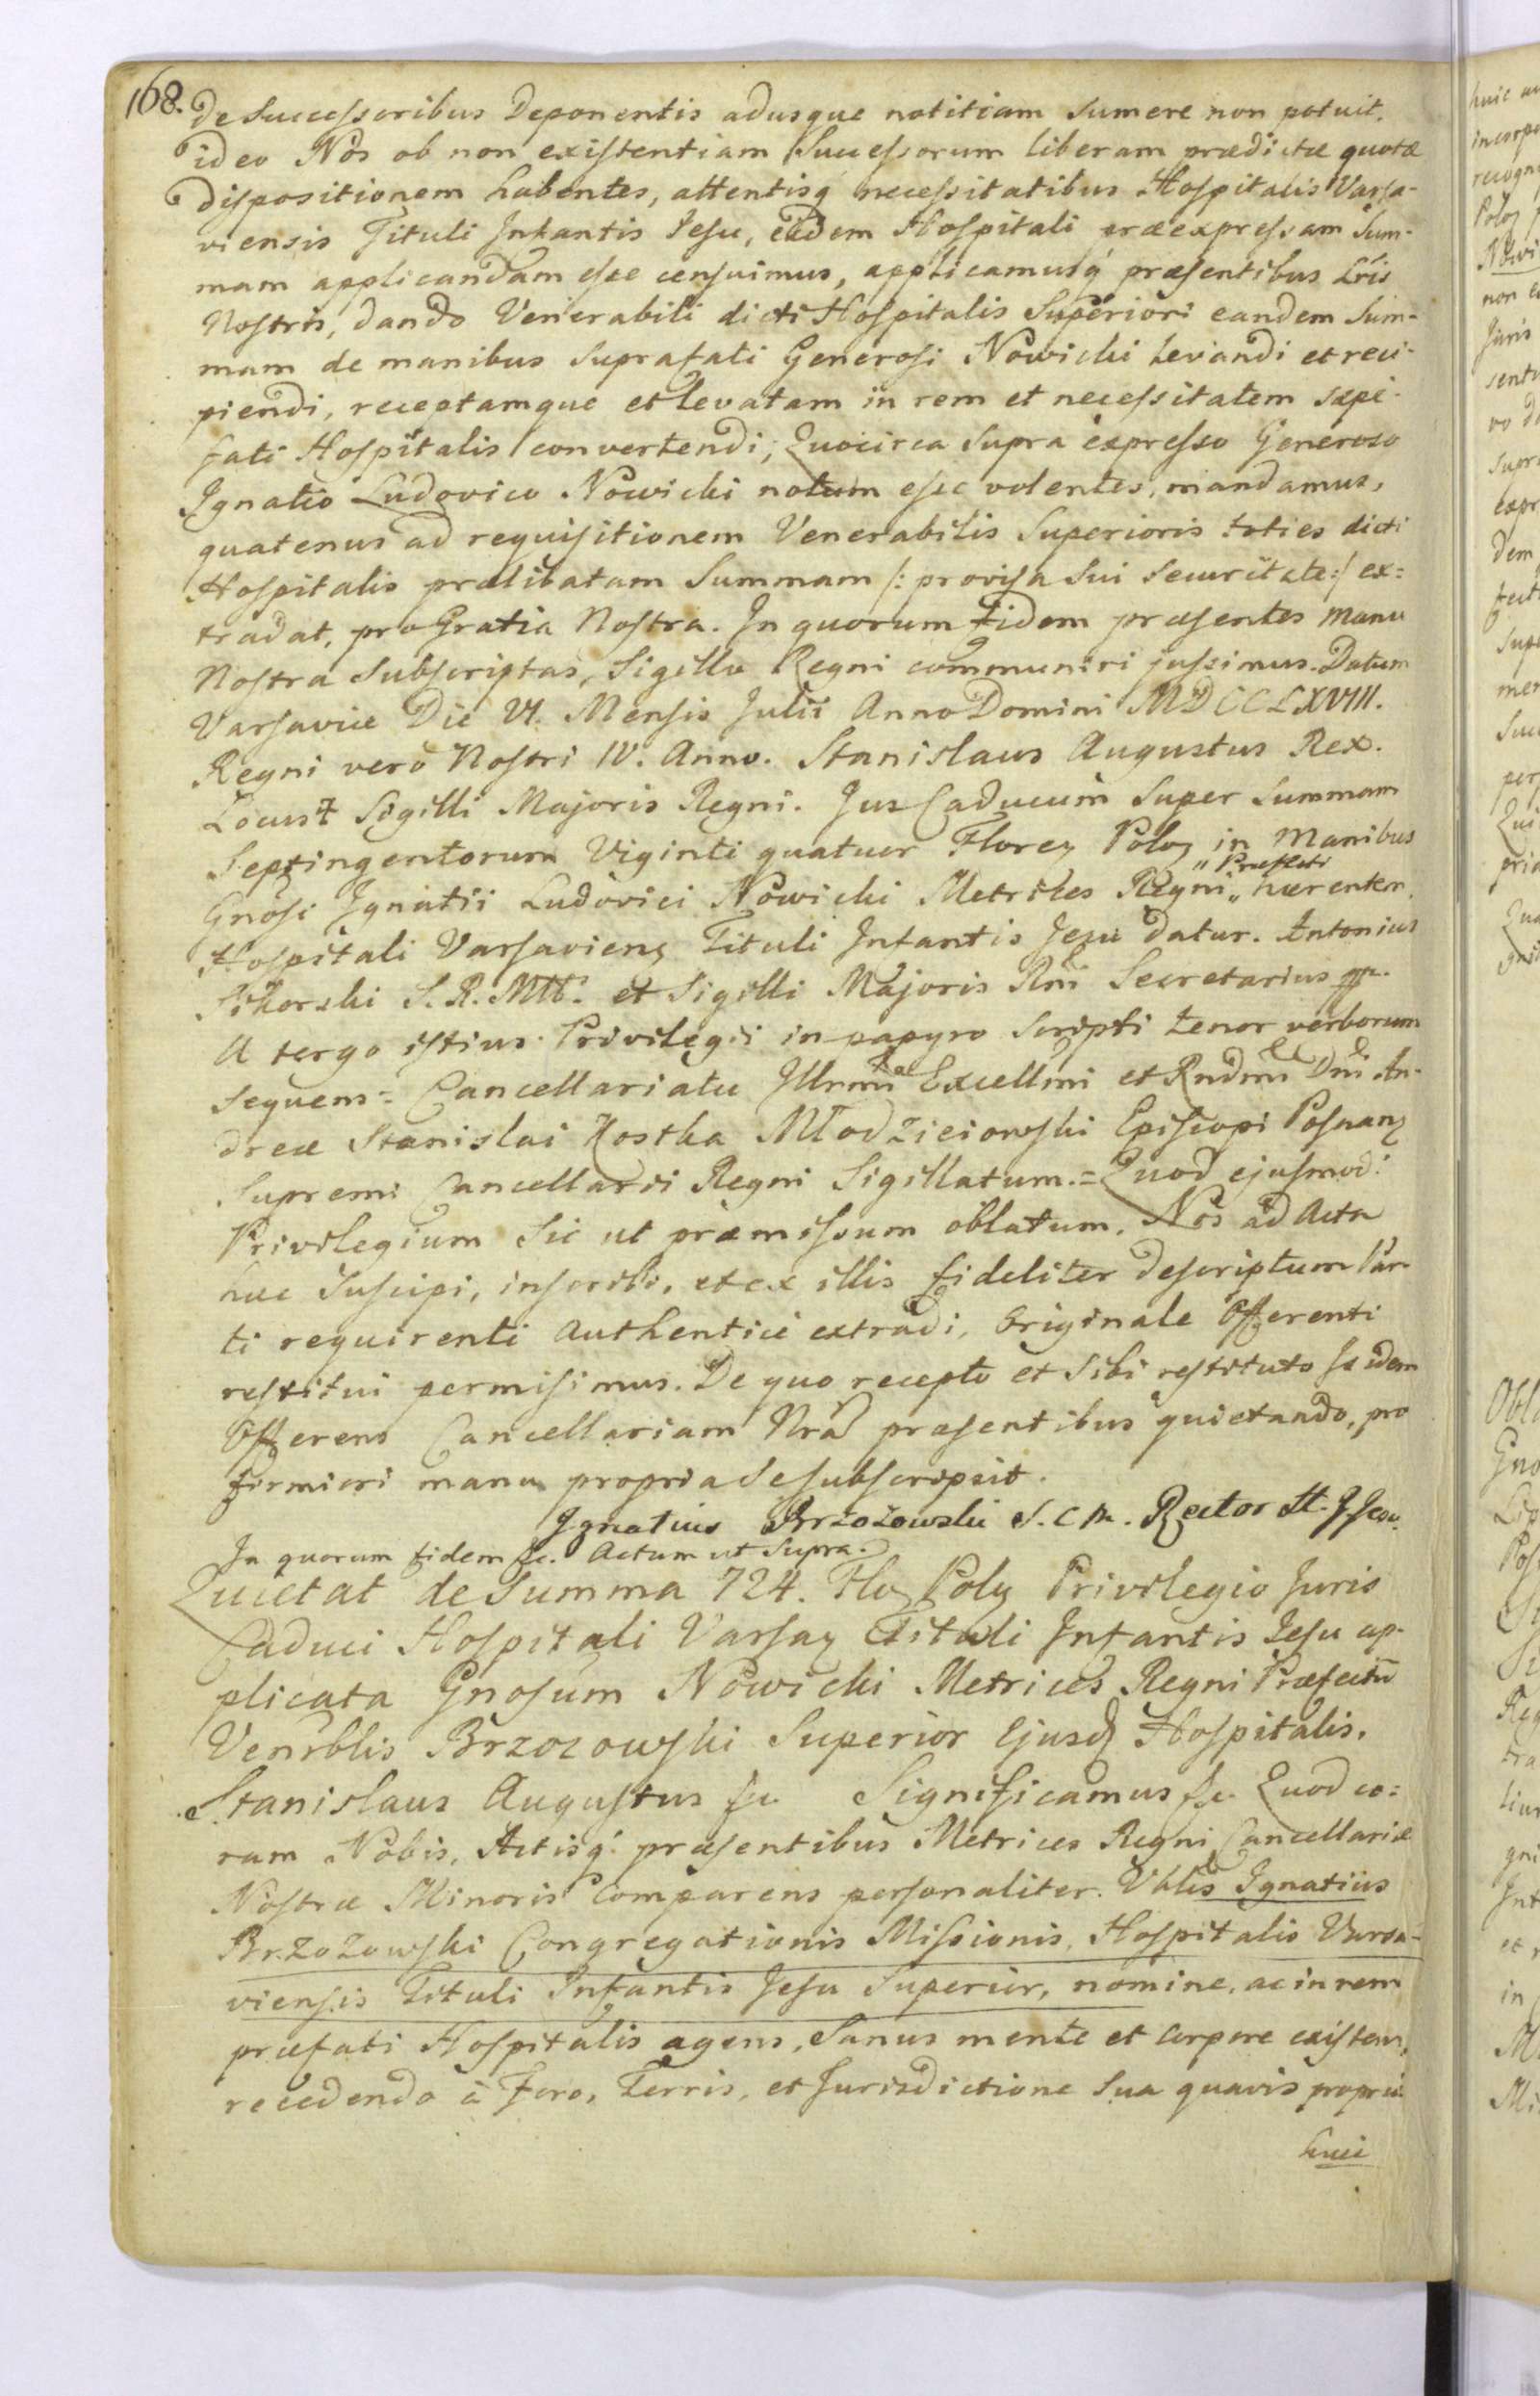 168.
de Successoribus Deponentis adusque notitiam Sumere non potuit.
ideo Nos ob non existentiam Successorum liberam prædictæ quotæ
dispositionem habentes, attentisq́ necessitatibus Hospitalis Varsa-
viensis Tituli Infantis Jesu, eidem Hospitali præexpressam Sum-
mam applicandam esse censuimus, applicamusq́ præsentibus Lris
Nostris, dando Venerabili dicti Hospitalis Superiori eandem Sum-
mam de manibus Suprafati Generosi Nowicki levandi et reci-
piendi, receptamque et levatam in rem et necessitatem sæpe-
fati Hospitalis convertendi; Quocirca Supra expresso Generoso
Ignatio Ludovico Nowicki notum esse volentes, mandamus,
quatenus ad requisitionem Venerabilis Superioris toties dicti
Hospitalis prælibatam Summam /: provisa Sui Securitate :/ ex=
tradat, pro Gratia Nostra. In quorum Fidem præsentes Manu
Nostra Subscriptas, Sigillo Regni communiri jussimus. Datum
Varsaviæ Die VI. Mensis Julii Anno Domini MDCCLXVIII.
Regni vero Nostri IV. Anno. Stanislaus Augustus Rex.
Locus Sigilli Majoris Regni. Jus Caducum Super Summam
Septingentorum Viginti quatuor Floreṇ Poloṇ in Manibus
Gnosi Ignatii Ludovici Nowicki Metrices Regni „ Præfecti „ hærentem
Hospitali Varsavienṣ Tituli Infantis Jesu datur. Antonius
Sikorski S. R. Mtt. et Sigilli Majoris Rni Secretarius mp.
A tergo istius Privilegii in papyro Scripti tenor verborum
Sequens = Cancellariatu Illrmi Excellmi et Rndmi Dni An-
dreæ Stanislai Kostka Młodzieiowski Episcopi Posnanṣ
Supremi Cancellarii Regni Sigillatum. = Quod ejusmodi
Privilegium Sic ut præmissum oblatum, Nos ad Acta
hæc Suscipi, inscribi, et ex illis fideliter descriptum Par-
ti requirenti Authentice extradi, Originale Offerenti
restitui permisimus. De quo recepto et Sibi restituto idem
Offerens Cancellariam Nrã præsentibus quietando, pro
firmiori manu propria Se subscripsit.
Ignatius Brzozowski S. C. M. Rector H. I. Jesu.
In quorum fidem &c. Actum ut Supra.
Quietat de Summa 724. Floṇ Poloṇ Privilegio Juris
Caduci Hospitali Varsaṿ Tituli Infantis Jesu ap-
plicata Gnosum Nowicki Metrices Regni Præfectũ
Venrblis Brzozowski Superior Ejusd Hospitalis.
Stanislaus Augustus &c. Significamus &c. Quod co=
ram Nobis, Actisq́ præsentibus Metrices Regni Cancellariæ
Nostræ Minoris Comparens personaliter Vblis Ignatius
Brzozowski Congregationis Missionis, Hospitalis Varsa-
viensis Tituli Infantis Jesu Superior, nomine, ac in rem
præfati Hospitalis agens, Sanus mente et Corpore existens,
recedendo à Foro, Terris, et Jurisdictione Sua quavis propria
huic